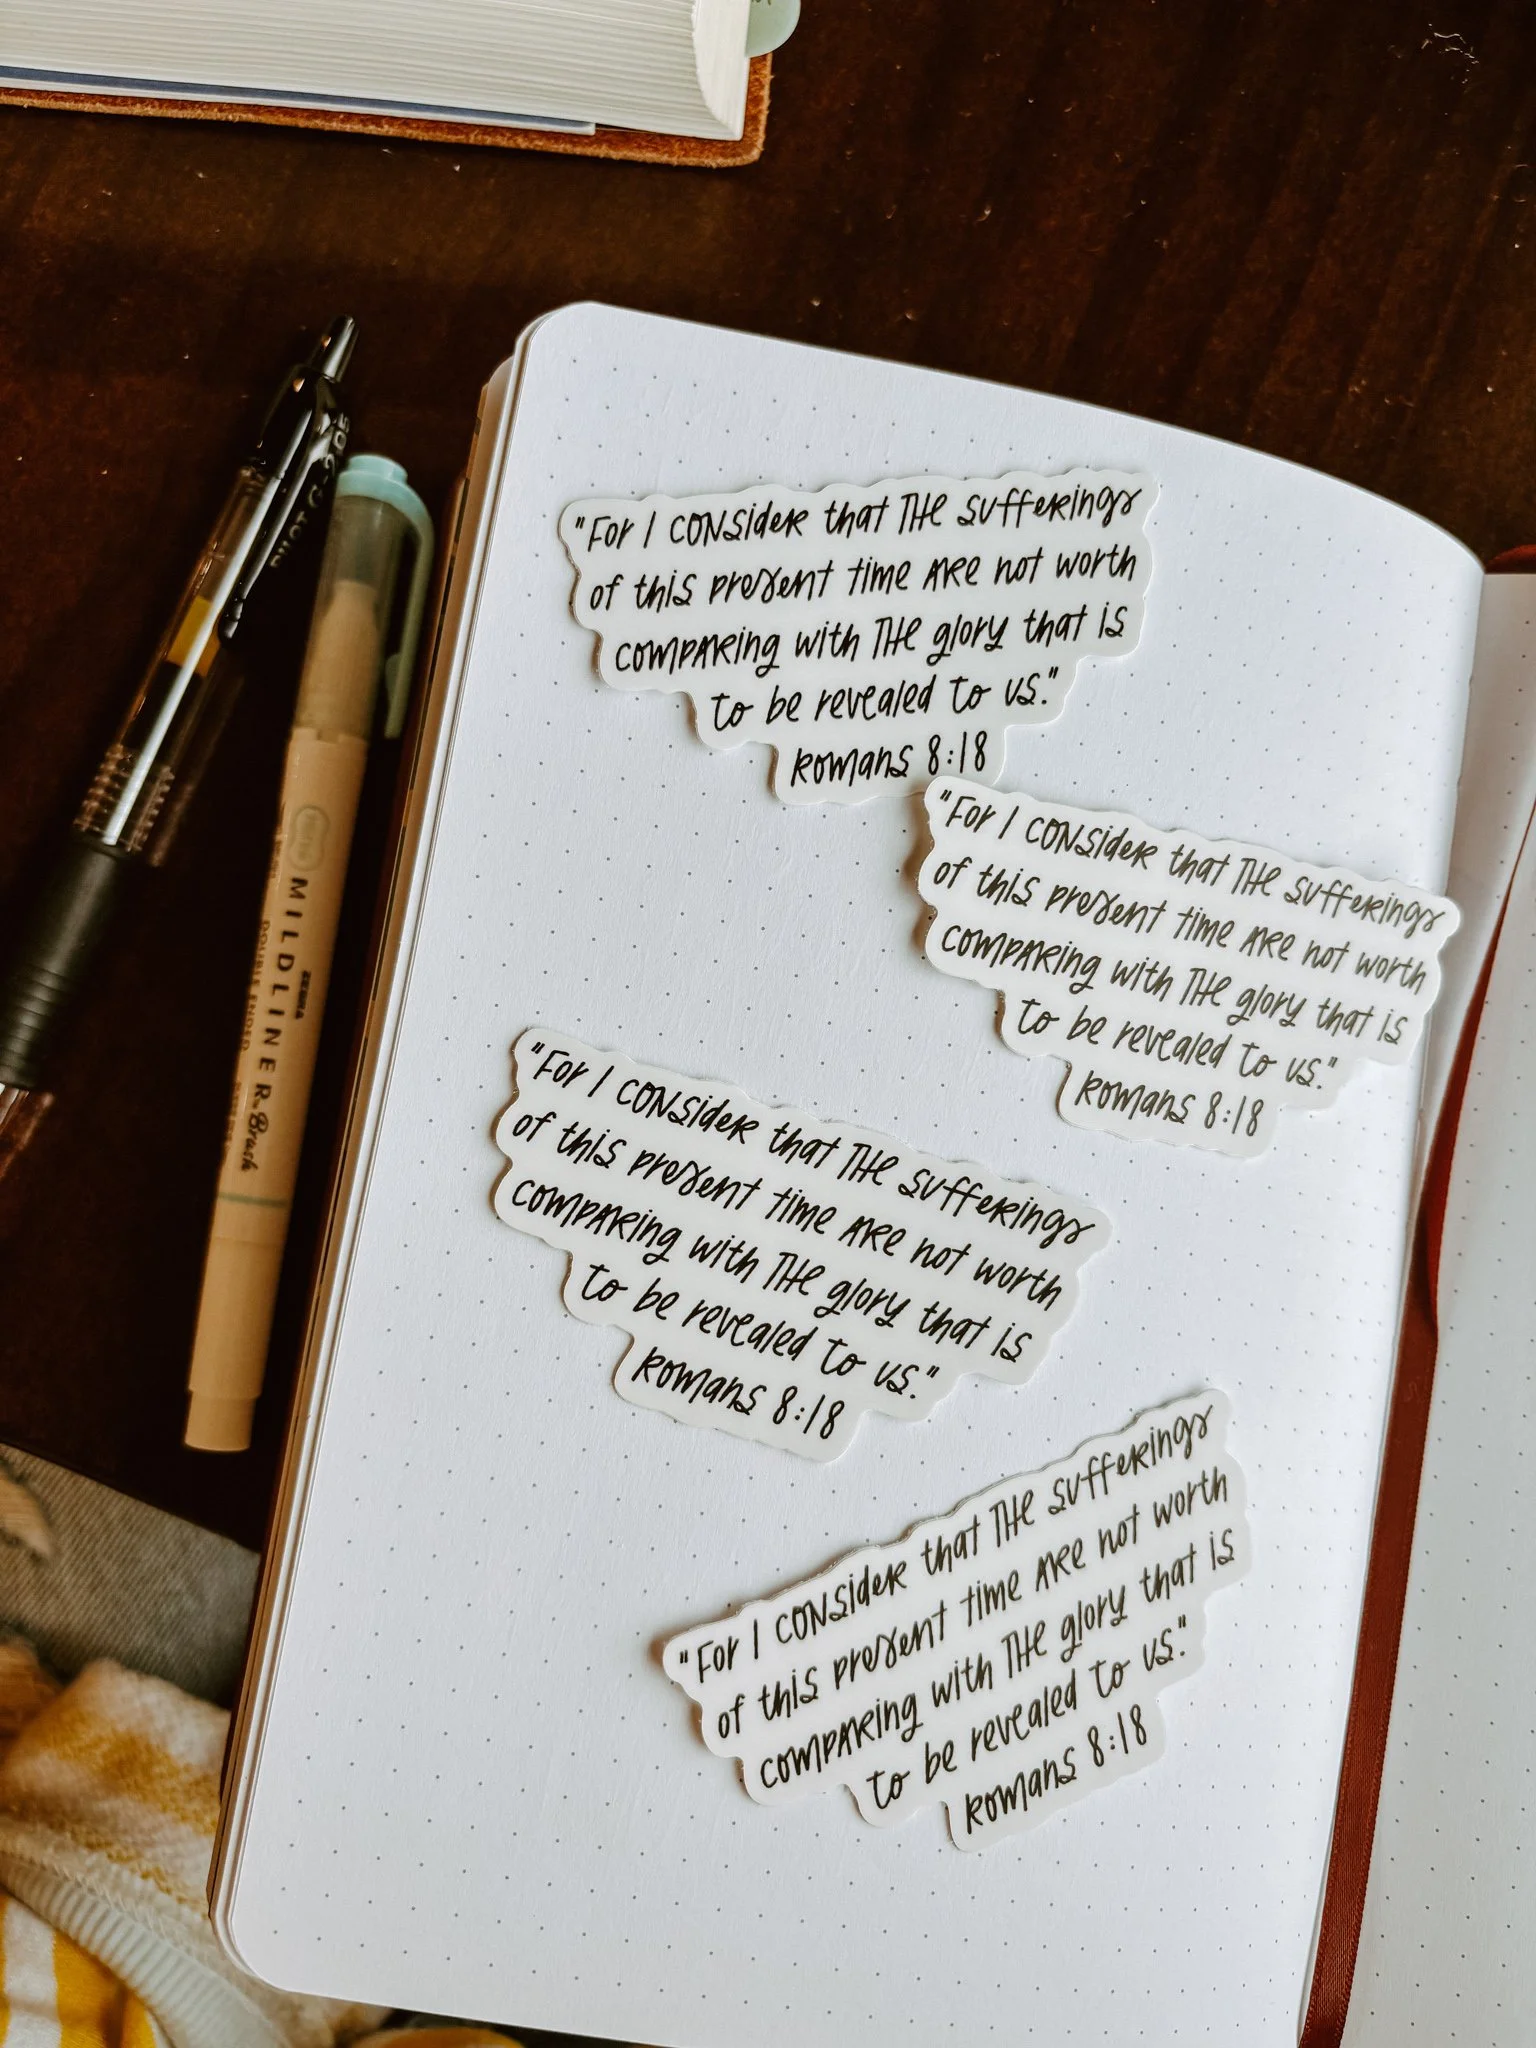 "For I consider that the sufferings
of this present time are not worth
comparing with the glory that is
to be revealed to us."
Romans 8:18
"For I consider that the sufferings
of this present time are not worth
comparing with the glory that is
to be revealed to us."
Romans 8:18
"For I consider that the sufferings
of this present time are not worth
comparing with the glory that is
to be revealed to us."
Romans 8:18
"For I consider that the sufferings
of this present time are not worth
comparing with the glory that is
to be revealed to us."
Romans 8:18
PILOT G-2 05
ZEBRA
MILDLINER Brush
DOUBLE ENDED